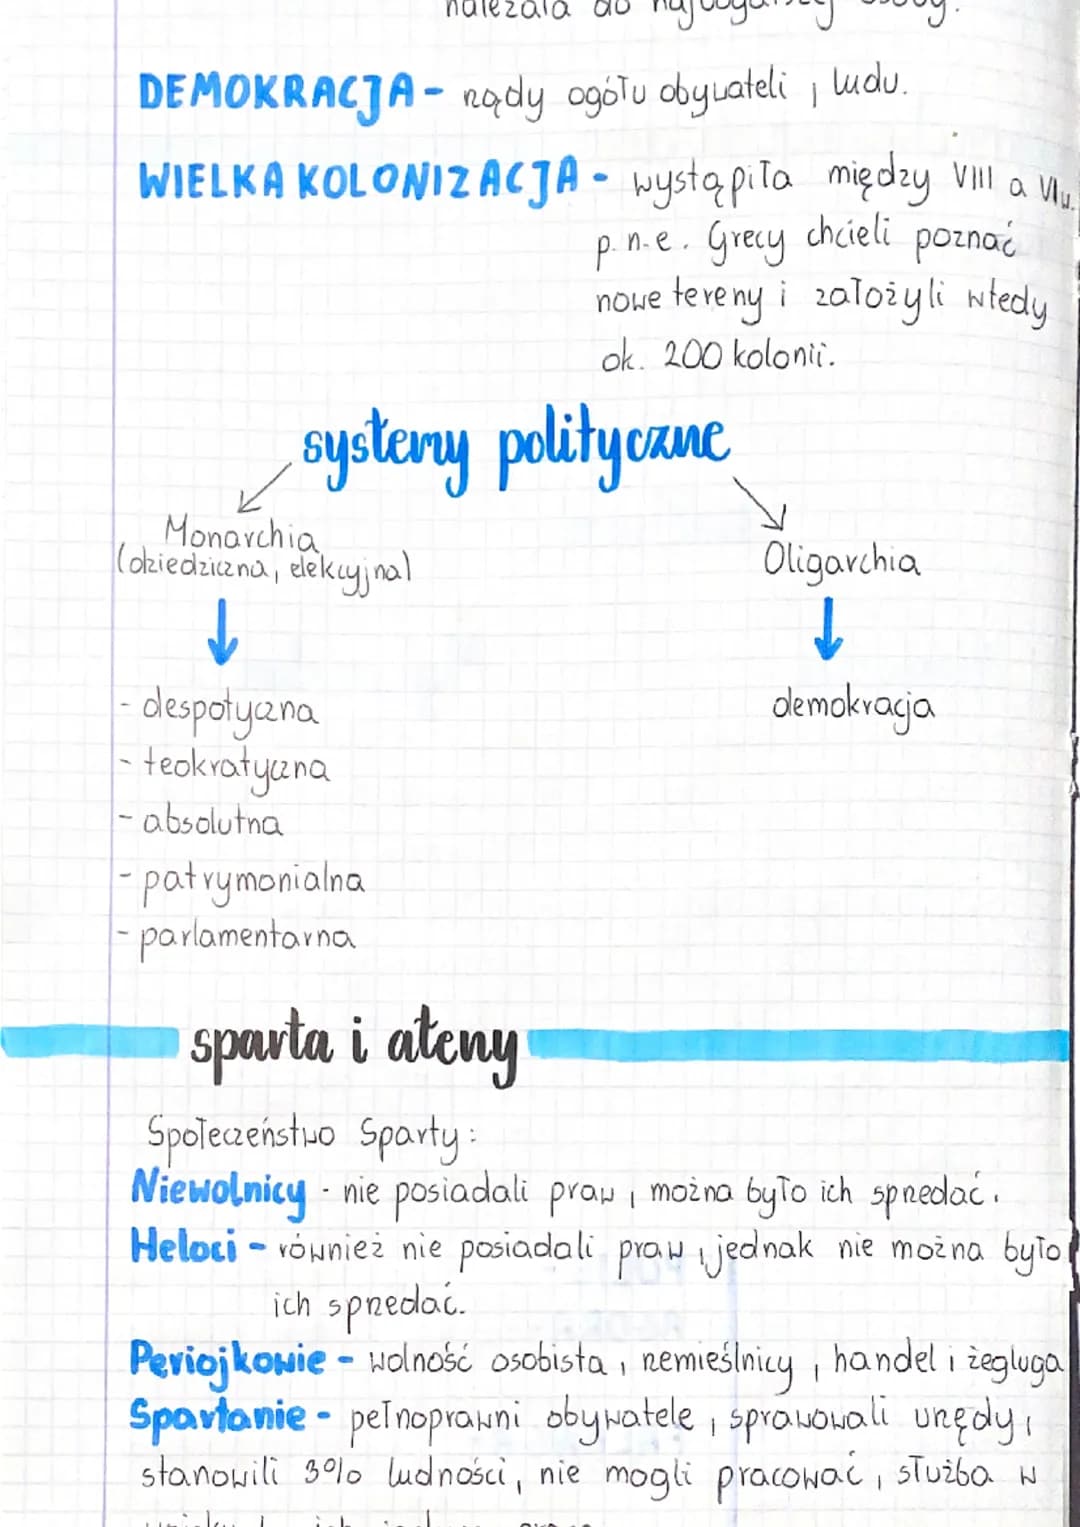 należała do najbogatszej osoby.
DEMOKRACJA - rządy ogółu obywateli, ludu.
WIELKA KOLONIZACJA - wystąpiła między VIII a VI w.
p.n.e. Grecy chcieli poznać
nowe tereny i założyli wtedy
ok. 200 kolonii.
systemy polityczne
Monarchia
(dziedziczna, elekcyjna)
Oligarchia
- despotyczna
demokracja
- teokratyczna
- absolutna
- patrymonialna
- parlamentarna
sparta i ateny
Społeczeństwo Sparty:
Niewolnicy - nie posiadali praw, można było ich sprzedać.
Heloci - również nie posiadali praw, jednak nie można było
ich sprzedać.
Periojkowie - wolność osobista, rzemieślnicy, handel i żegluga
Spartanie - pełnoprawni obywatele, sprawowali urzędy,
stanowili 3% ludności, nie mogli pracować, służba w